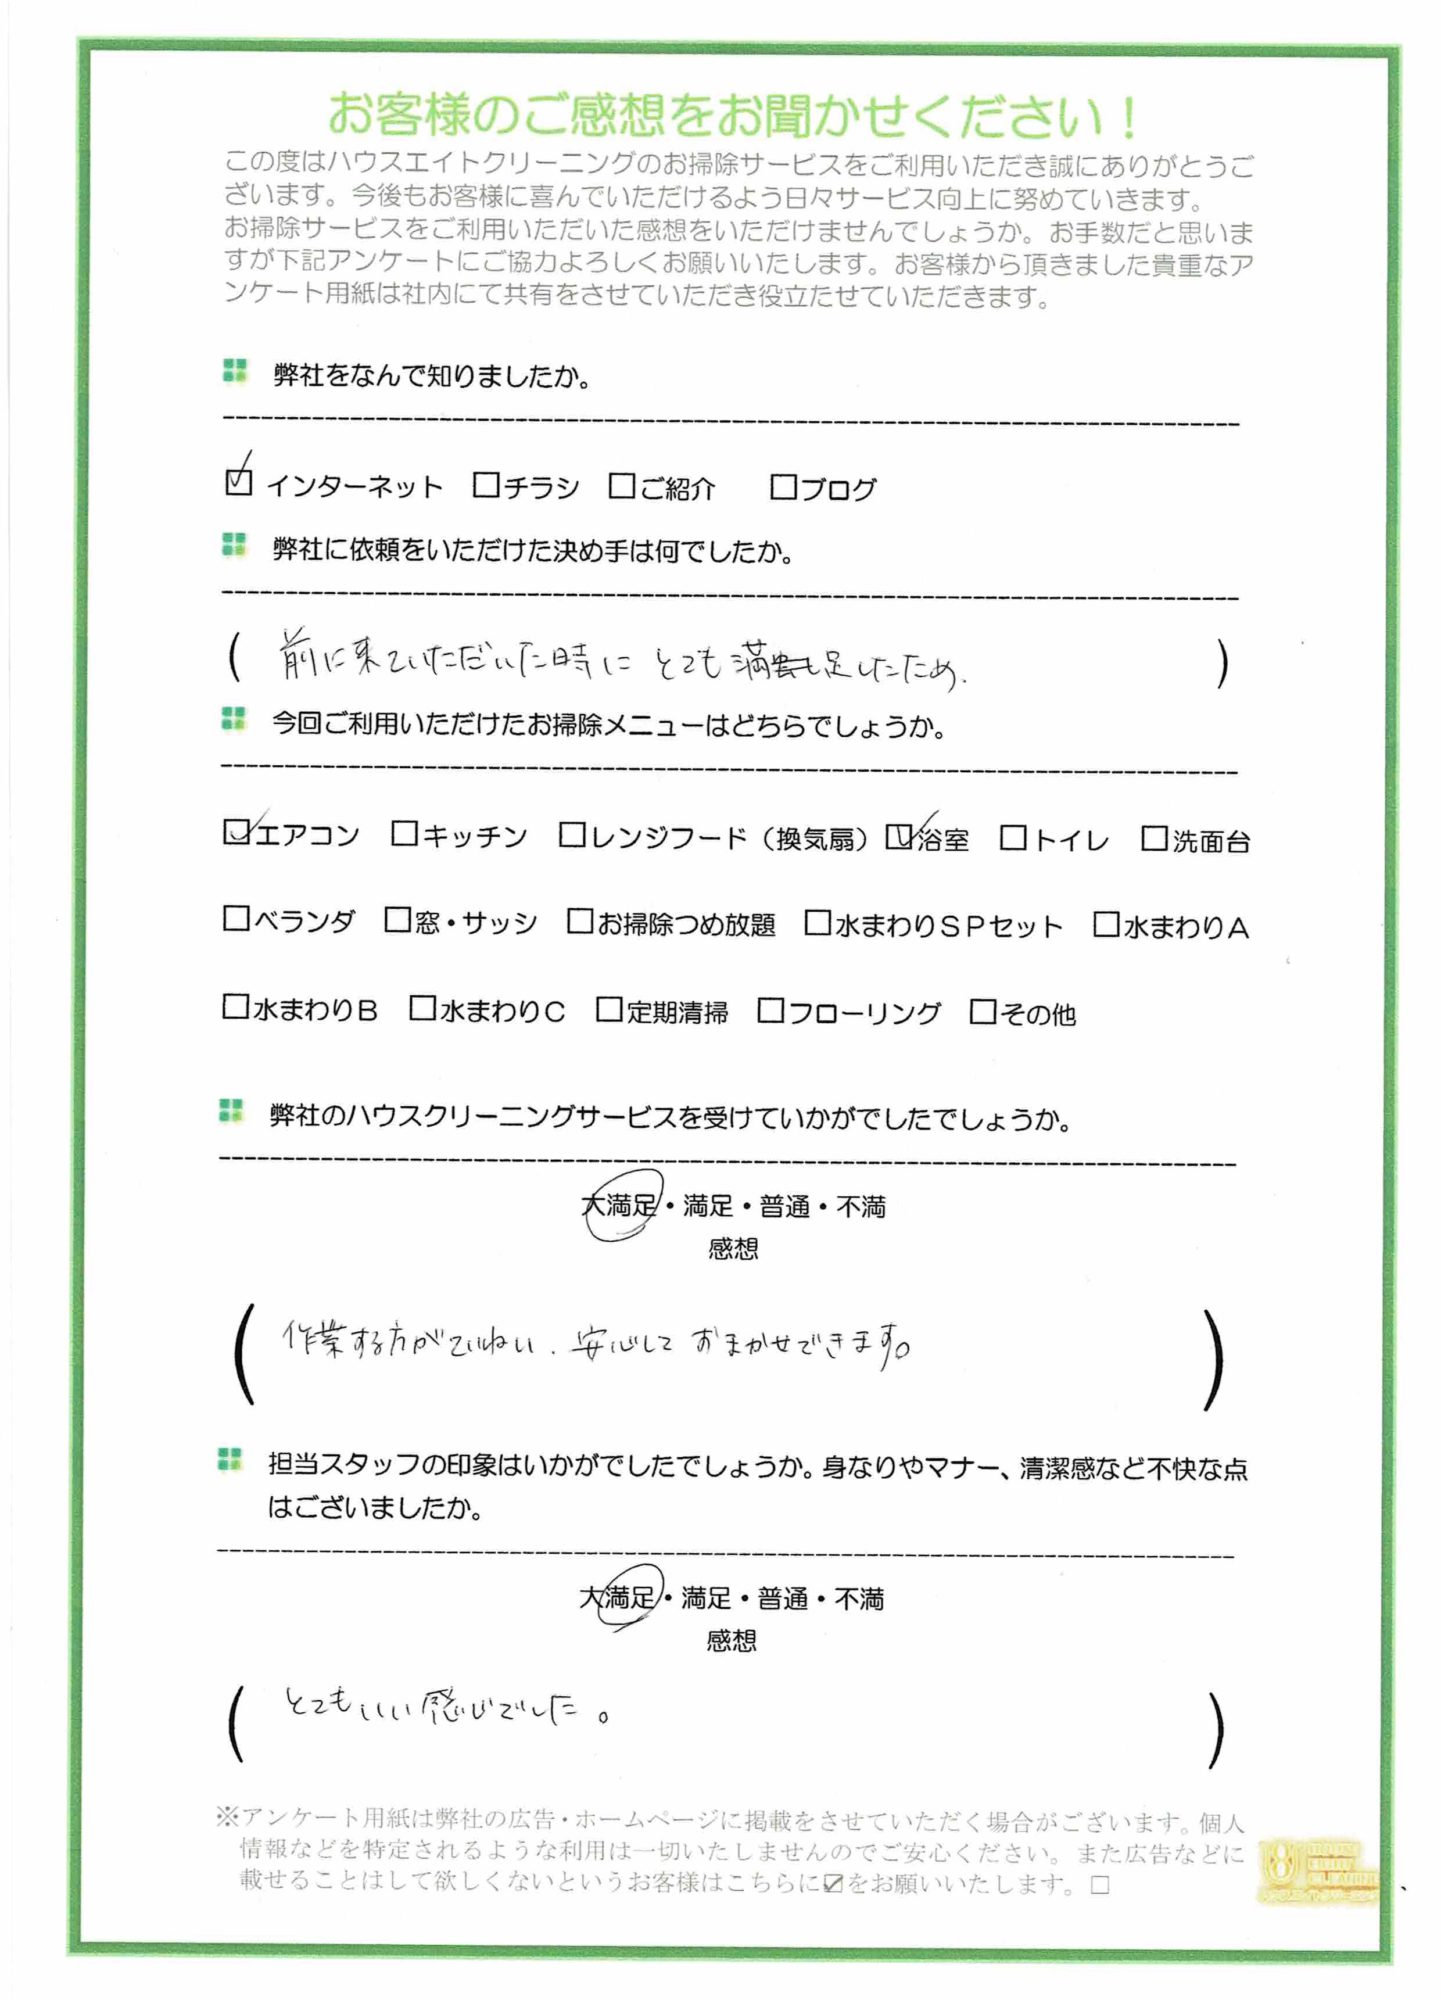 お客様のご感想をお聞かせください！
この度はハウスエイトクリーニングのお掃除サービスをご利用いただき誠にありがとうご
ざいます。今後もお客様に喜んでいただけるよう日々サービス向上に努めていきます。
お掃除サービスをご利用いただいた感想をいただけませんでしょうか。お手数だと思いま
すが下記アンケートにご協力よろしくお願いいたします。お客様から頂きました貴重なア
ンケート用紙は社内にて共有をさせていただき役立たせていただきます。
弊社をなんで知りましたか。
☑インターネット □チラシ □ご紹介 □ブログ
弊社に依頼をいただけた決め手は何でしたか。
( 前に来ていただいた時に とても満足したため. )
今回ご利用いただけたお掃除メニューはどちらでしょうか。
☑エアコン □キッチン □レンジフード（換気扇） ☑浴室 □トイレ □洗面台
□ベランダ □窓・サッシ □お掃除つめ放題 □水まわりＳＰセット □水まわりＡ
□水まわりＢ □水まわりＣ □定期清掃 □フローリング □その他
弊社のハウスクリーニングサービスを受けていかがでしたでしょうか。
大満足・満足・普通・不満
感想
( 作業する方がていねい. 安心して おまかせできます。 )
担当スタッフの印象はいかがでしたでしょうか。身なりやマナー、清潔感など不快な点
はございましたか。
大満足・満足・普通・不満
感想
( とてもいい感じでした。 )
※アンケート用紙は弊社の広告・ホームページに掲載をさせていただく場合がございます。個人
情報などを特定されるような利用は一切いたしませんのでご安心ください。また広告などに
載せることはして欲しくないというお客様はこちらに☑をお願いいたします。□